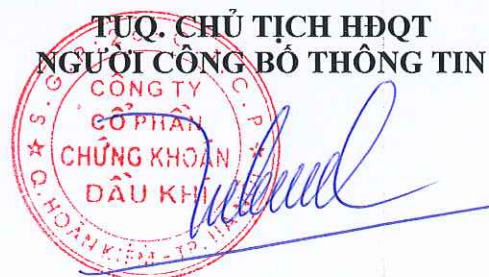 TUQ. CHỦ TỊCH HĐQT
NGƯỜI CÔNG BỐ THÔNG TIN
CÔNG TY
CỔ PHẦN
CHỨNG KHOÁN
DẦU KHÍ